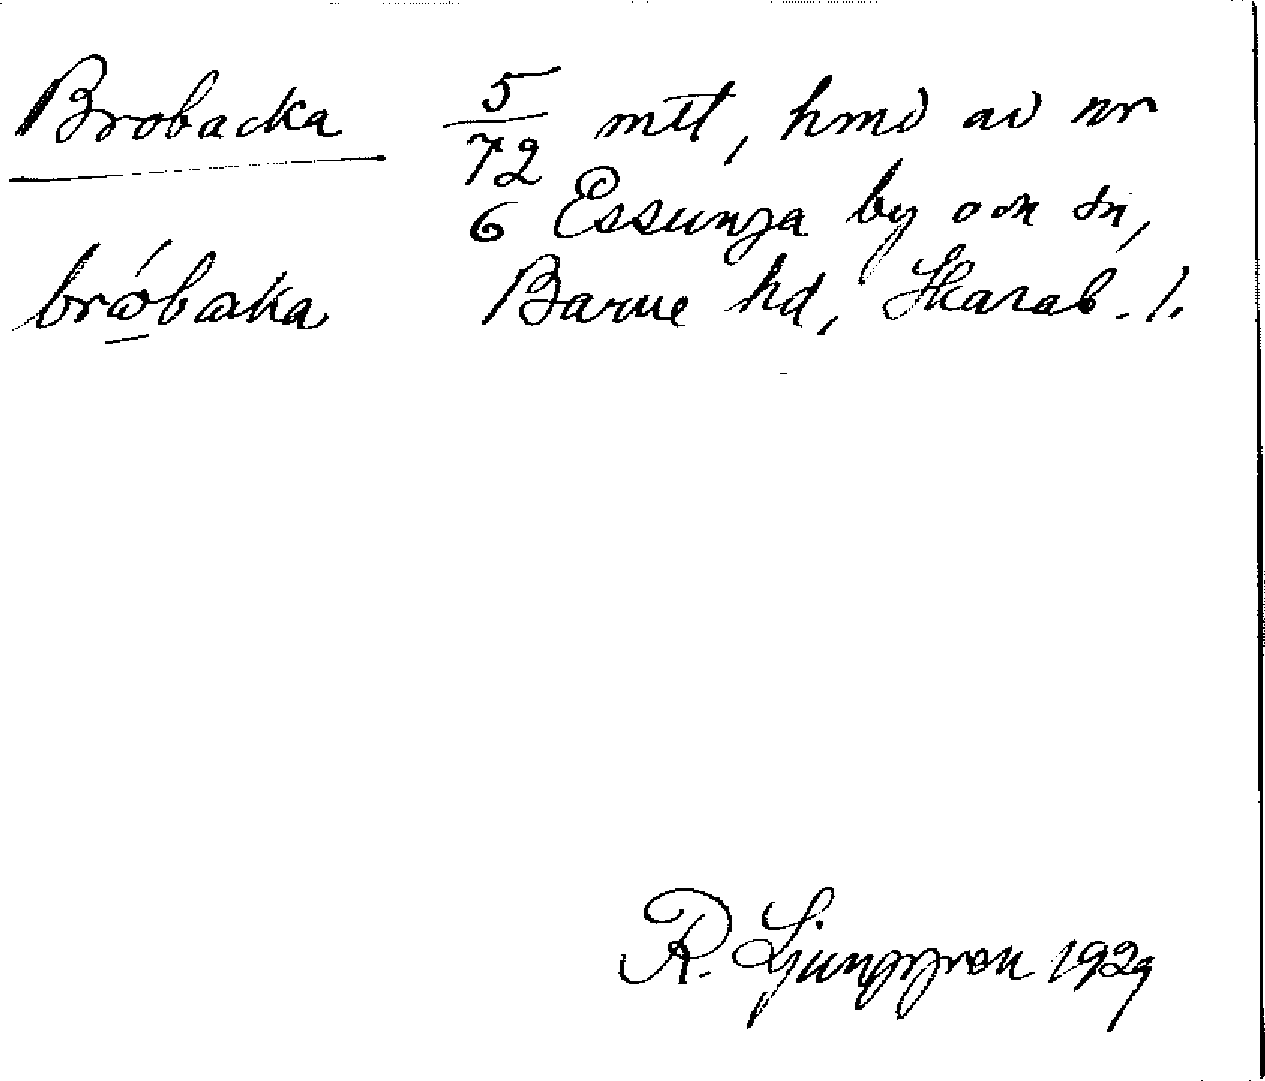 Brobacka 5/72 mtl, hmd av nr
6 Essunga by och sn,
bróbaka Barne hd, Skarab. l.
R. Ljunggren 1929